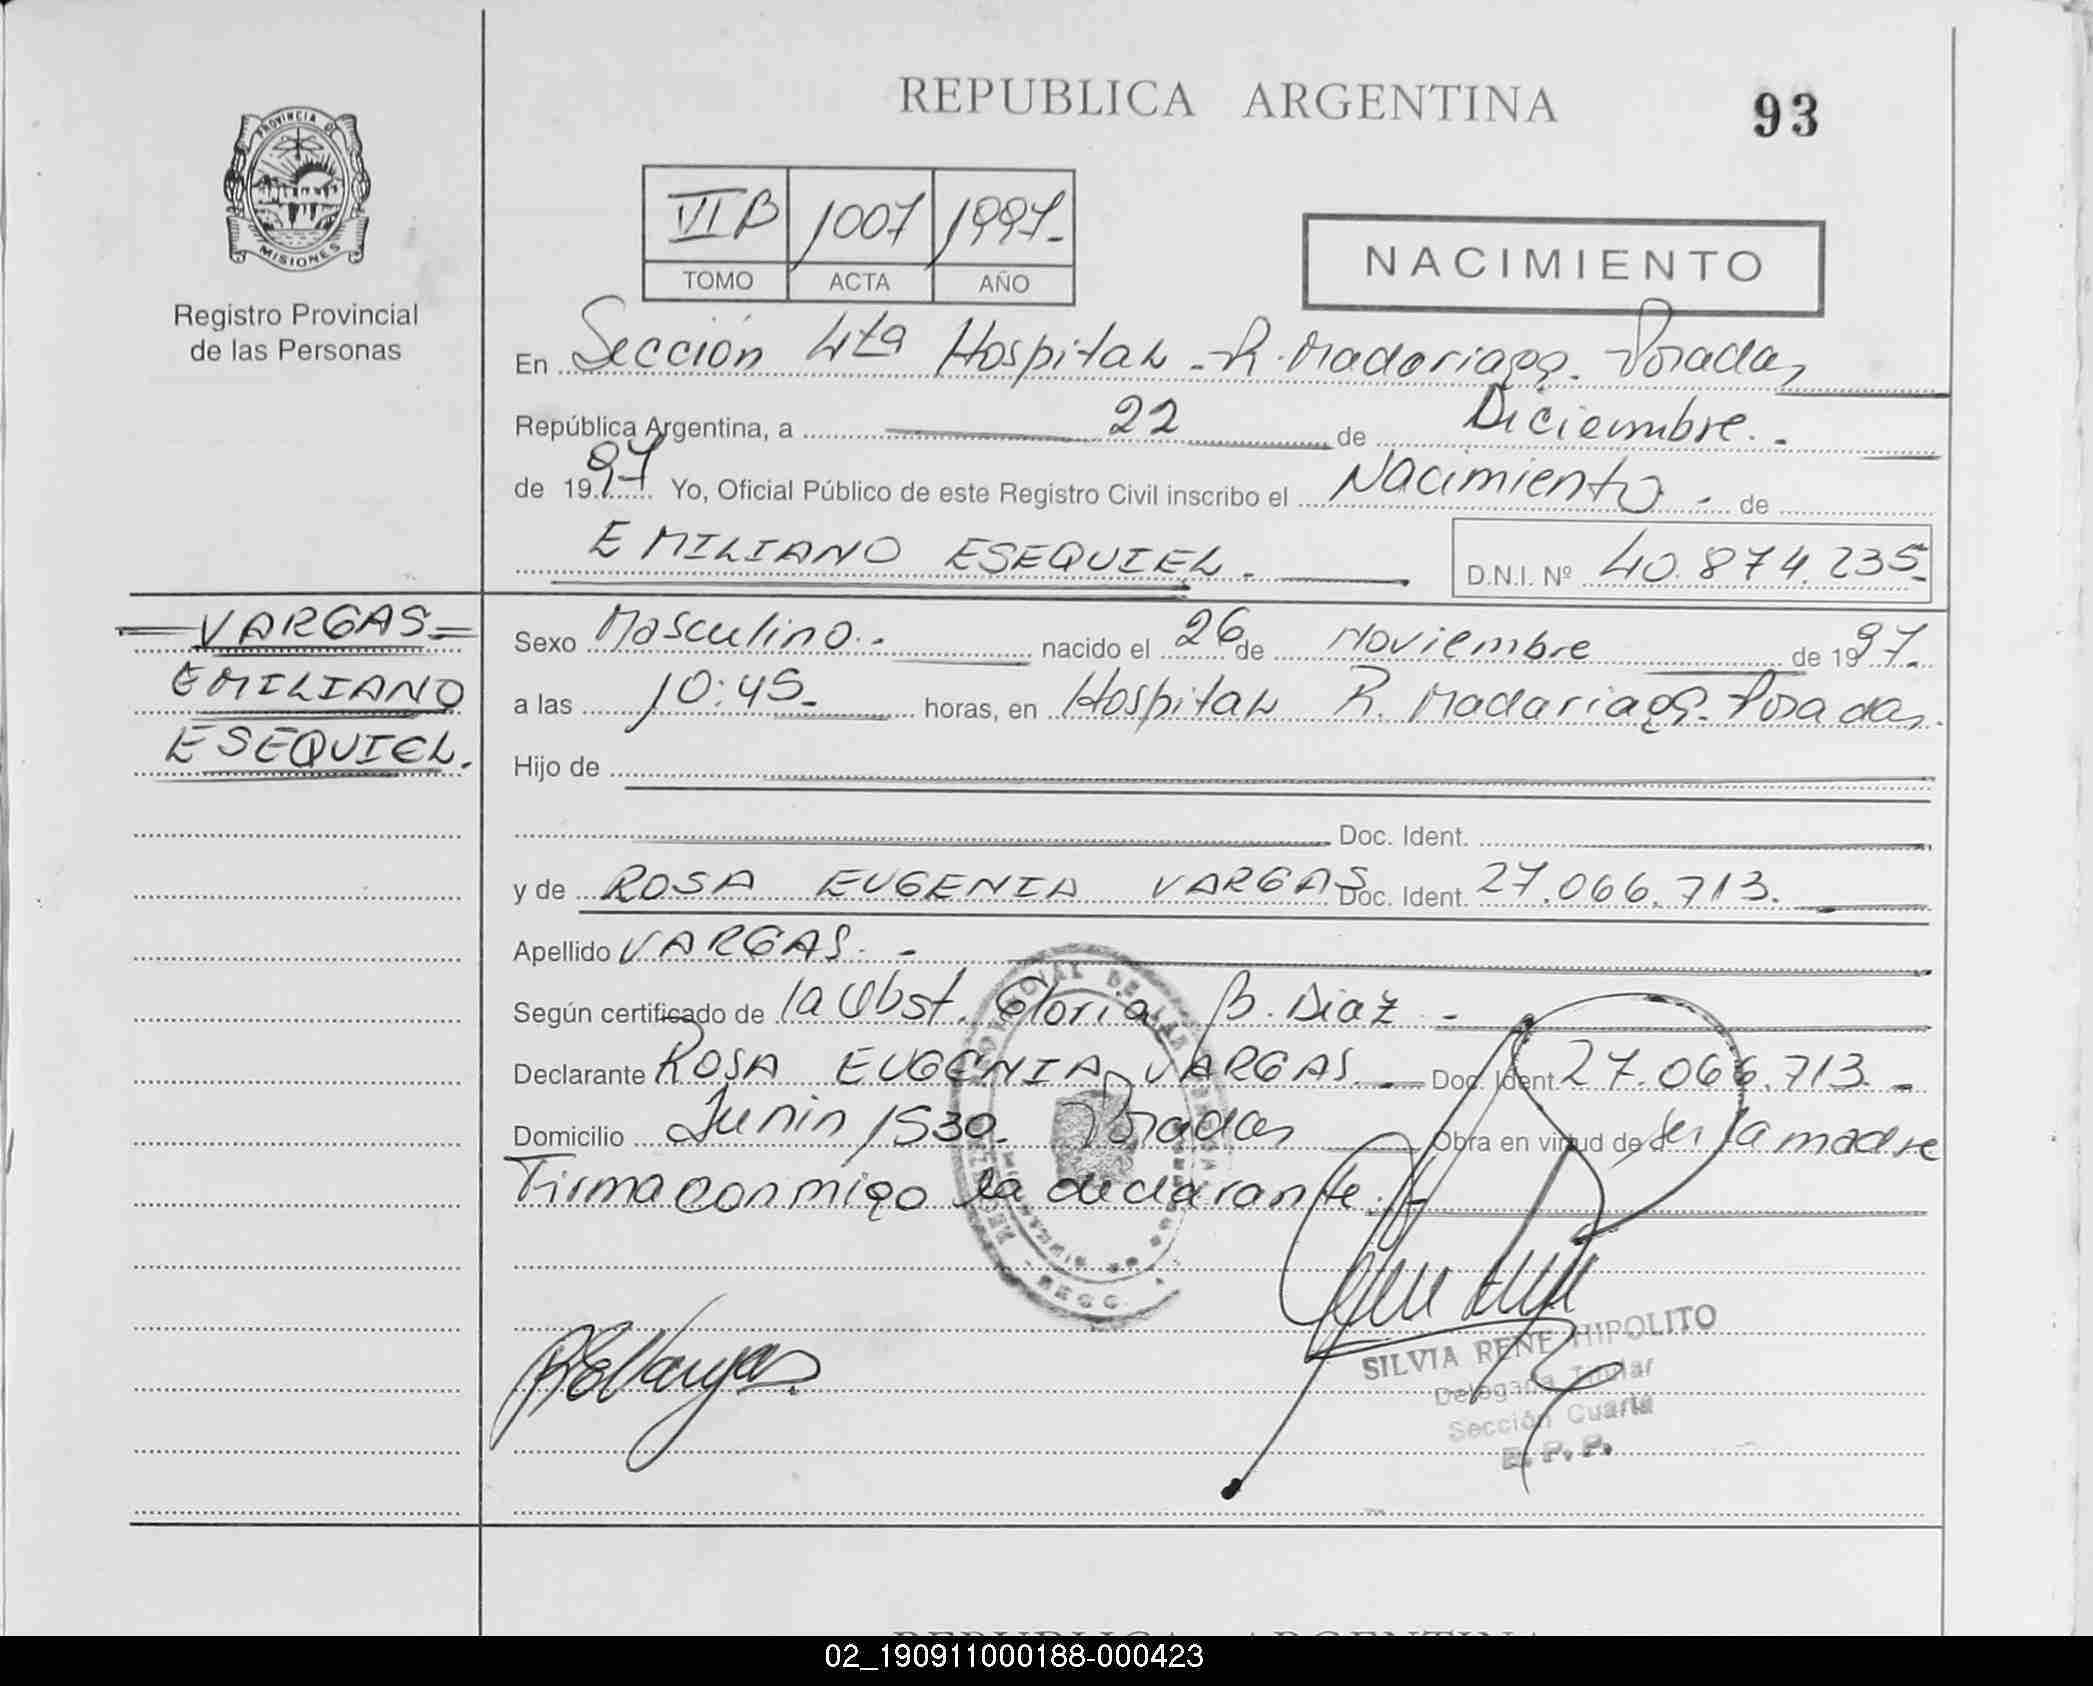 REPUBLICA ARGENTINA
93
PROVINCIA DE
MISIONES
Registro Provincial
de las Personas
VI B 1007 1997.-
TOMO ACTA AÑO
NACIMIENTO
En Sección 4ta Hospital - R. Madariaga. Posadas
República Argentina, a 22 de Diciembre.-
de 1997 Yo, Oficial Público de este Registro Civil inscribo el Nacimiento - de
EMILIANO ESEQUIEL.- D.N.I. Nº 40.874.235-
VARGAS
EMILIANO
ESEQUIEL.
Sexo Masculino.- nacido el 26 de Noviembre de 1997.-
a las 10:45- horas, en Hospital R. Madariaga. Posadas.
Hijo de
Doc. Ident.
y de ROSA EUGENIA VARGAS Doc. Ident. 27.066.713.
Apellido VARGAS.-
Según certificado de la Obst. Gloria B. Diaz -
Declarante ROSA EUGENIA VARGAS.- Doc. Ident. 27.066.713.-
Domicilio Junin 1530. Posadas Obra en virtud de ser la madre
Firma conmigo la declarante.-
REVargas
SILVIA RENE HIPOLITO
Delegada Titular
Sección Cuarta
R. P. P.
REPUBLICA ARGENTINA
02_190911000188-000423